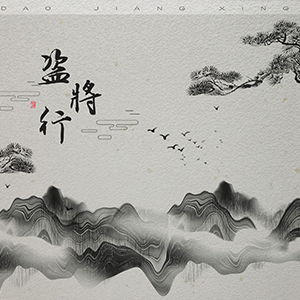 DAO JIANG XING
盗將行